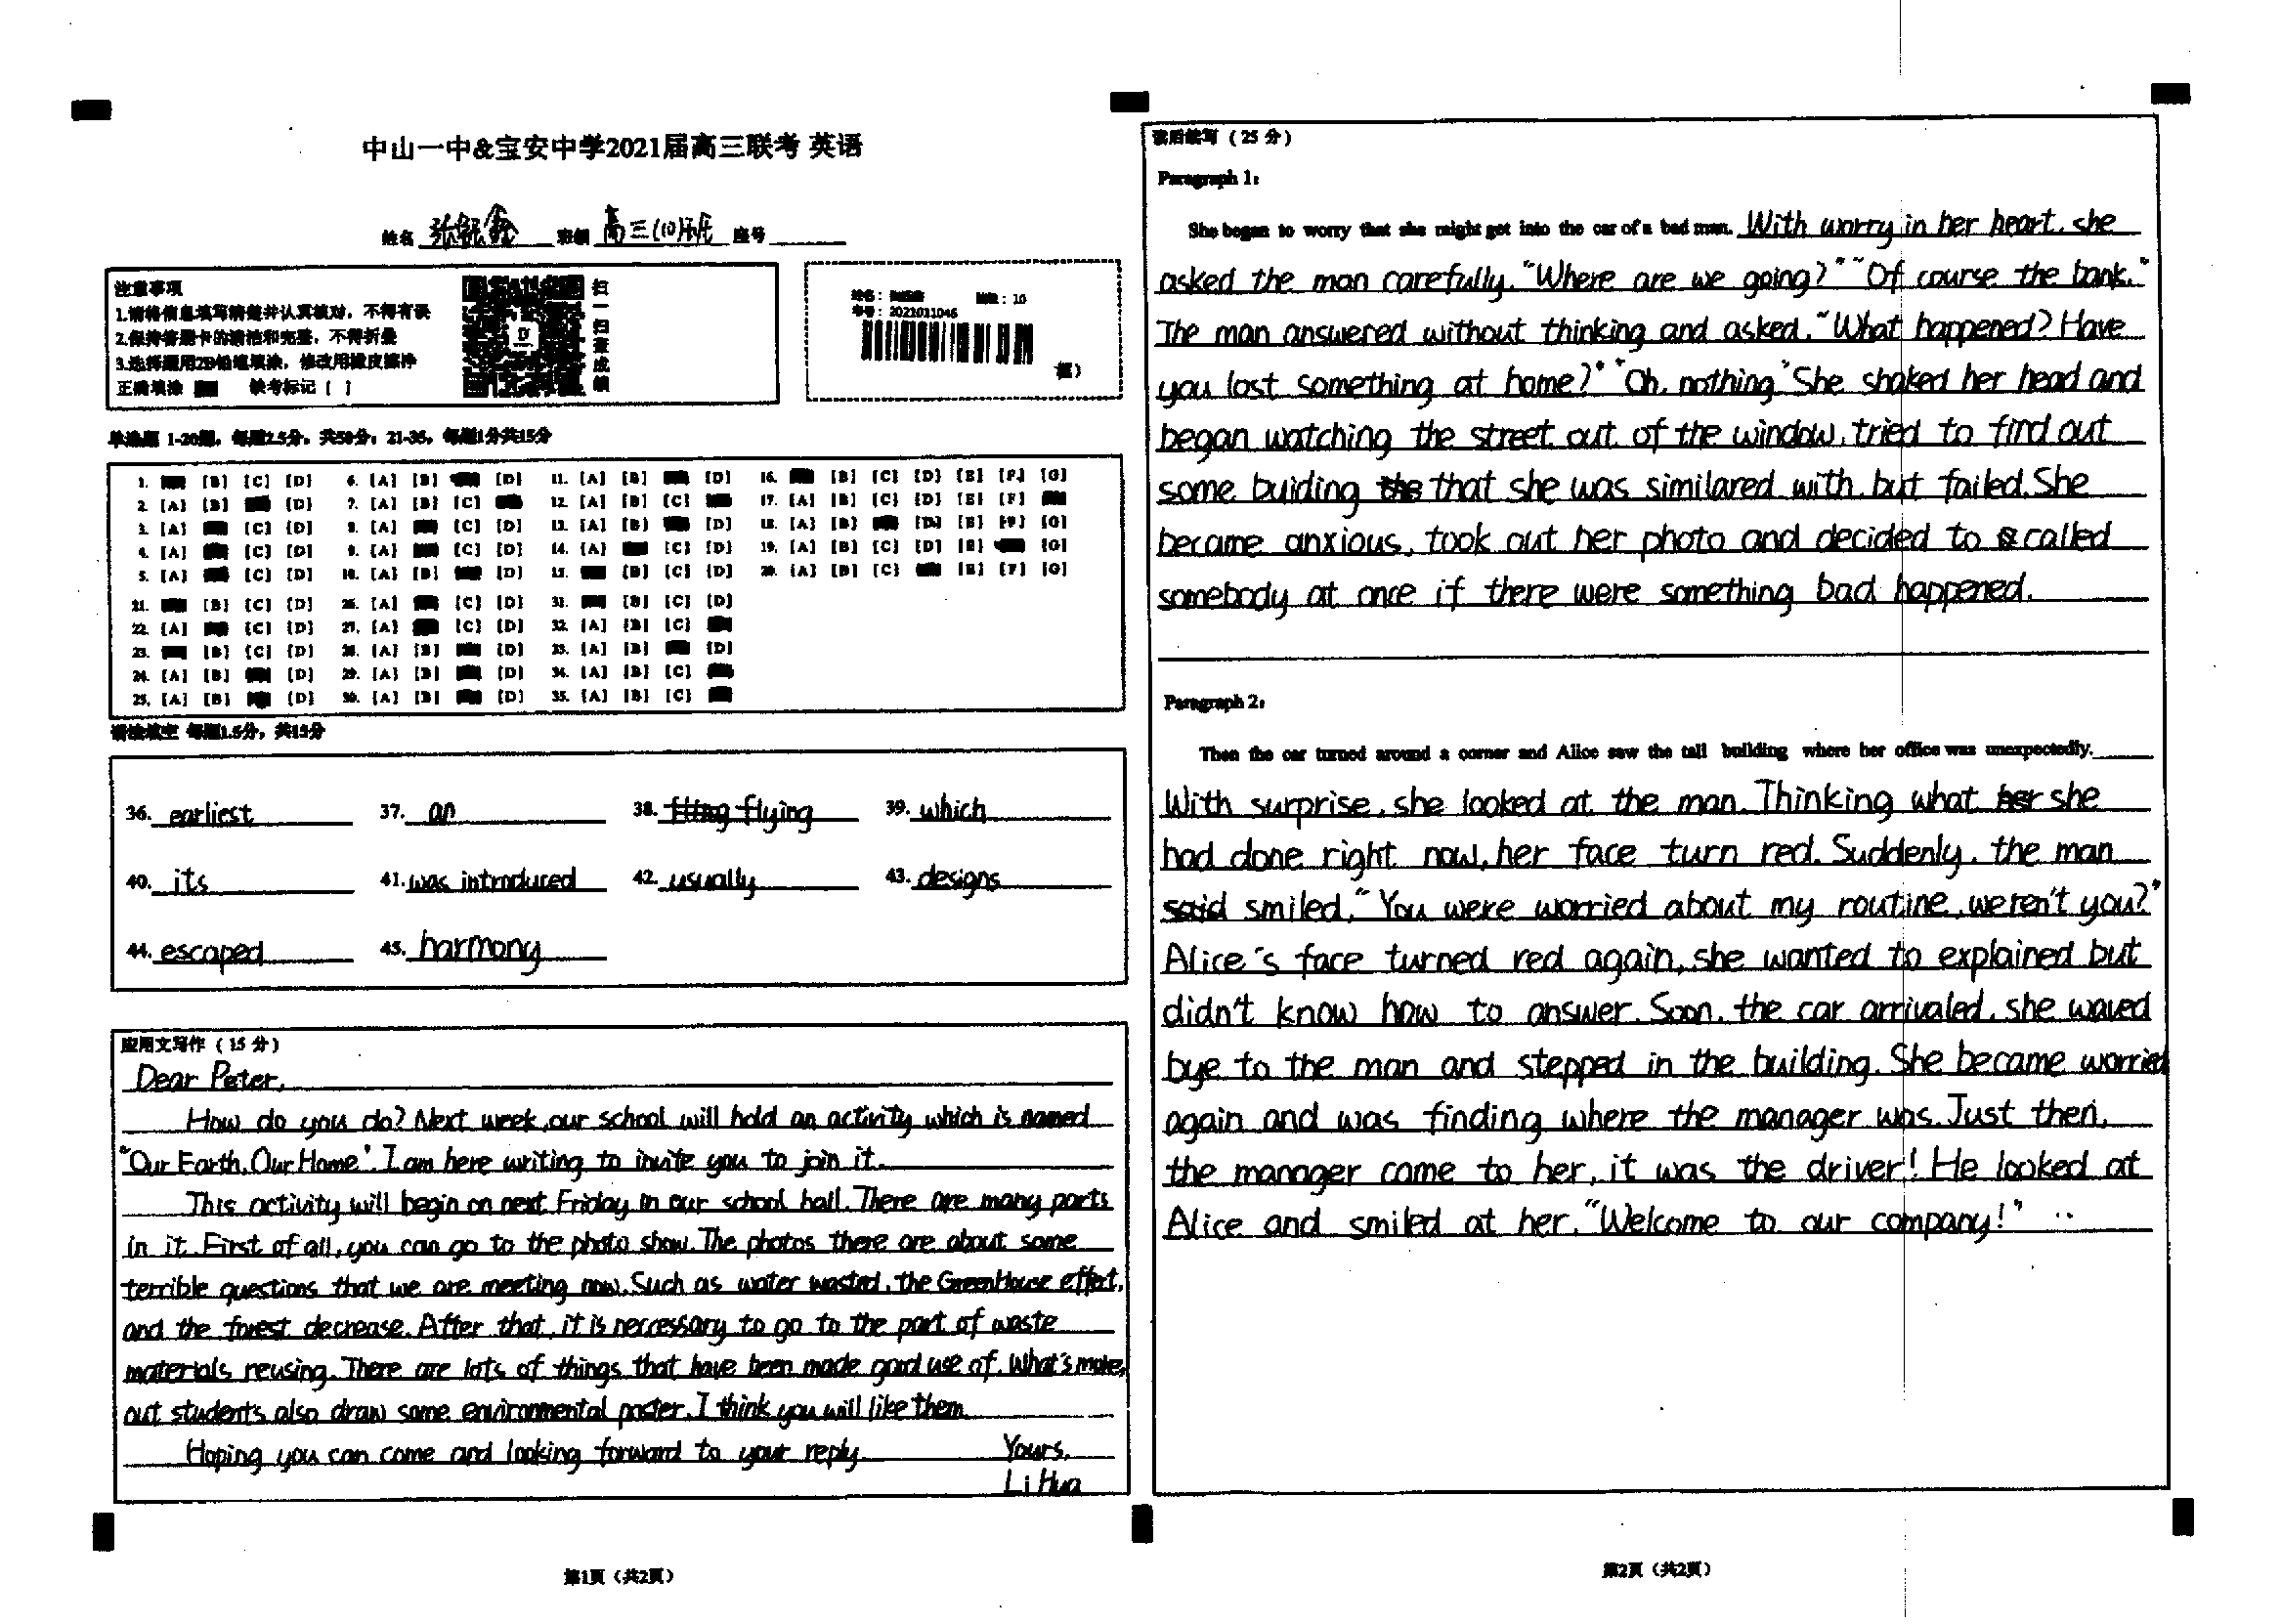 中山一中&宝安中学2021届高三联考 英语
姓名 班级 高三(10)班 座号
注意事项
1.请将信息填写清楚并认真核对，不得有误
2.保持答题卡的清洁和完整，不得折叠
3.选择题用2B铅笔填涂，修改用橡皮擦净
正确填涂 缺考标记 [ ]
扫一扫查成绩
班级：10
考号：2021011046
单选题 1-20题，每题2.5分，共50分；21-35，每题1分共15分
1. [B] [C] [D] 6. [A] [B] [D] 11. [A] [B] [D] 16. [B] [C] [D] [E] [F] [G]
2. [A] [B] [D] 7. [A] [B] [C] 12. [A] [B] [C] 17. [A] [B] [C] [D] [E] [F]
3. [A] [C] [D] 8. [A] [C] [D] 13. [A] [B] [D] 18. [A] [B] [D] [E] [F] [G]
4. [A] [C] [D] 9. [A] [C] [D] 14. [A] [C] [D] 19. [A] [B] [C] [D] [E] [G]
5. [A] [C] [D] 10. [A] [B] [D] 15. [B] [C] [D] 20. [A] [B] [C] [E] [F] [G]
21. [B] [C] [D] 26. [A] [C] [D] 31. [B] [C] [D]
22. [A] [C] [D] 27. [A] [C] [D] 32. [A] [B] [C]
23. [B] [C] [D] 28. [A] [B] [D] 33. [A] [B] [D]
24. [A] [B] [D] 29. [A] [B] [D] 34. [A] [B] [C]
25. [A] [B] [D] 30. [A] [B] [D] 35. [A] [B] [C]
语法填空 每题1.5分，共15分
36. earliest 37. an 38. flying 39. which
40. its 41. was introduced 42. usually 43. designs
44. escaped 45. harmony
应用文写作（15 分）
Dear Peter,
How do you do? Next week, our school will hold an activity which is named
"Our Earth, Our Home". I am here writing to invite you to join it.
This activity will begin on next Friday in our school hall. There are many parts
in it. First of all, you can go to the photo show. The photos there are about some
terrible questions that we are meeting now. Such as water wasted, the GreenHouse effect,
and the forest decrease. After that, it is neccessary to go to the part of waste
materials reusing. There are lots of things that have been made good use of. What's more,
out students also draw some environmental poster. I think you will like them.
Hoping you can come and looking forward to your reply.
Yours,
Li Hua
第1页（共2页）
读后续写（25 分）
Paragraph 1:
She began to worry that she might get into the car of a bad man. With worry in her heart, she
asked the man carefully, "Where are we going?" "Of course the bank."
The man answered without thinking and asked, "What happened? Have
you lost something at home?" "Oh, nothing" She shaked her head and
began watching the street out of the window, tried to find out
some buiding that she was similared with, but failed. She
became anxious, took out her photo and decided to called
somebody at once if there were something bad happened.
Paragraph 2:
Then the car turned around a corner and Alice saw the tall building where her office was unexpectedly.
With surprise, she looked at the man. Thinking what she
had done right now, her face turn red. Suddenly, the man
smiled, "You were worried about my routine, weren't you?"
Alice's face turned red again, she wanted to explained but
didn't know how to answer. Soon, the car arrivaled, she waved
bye to the man and stepped in the building. She became worried
again and was finding where the manager was. Just then,
the manager came to her, it was the driver! He looked at
Alice and smiled at her, "Welcome to our company!"
第2页（共2页）